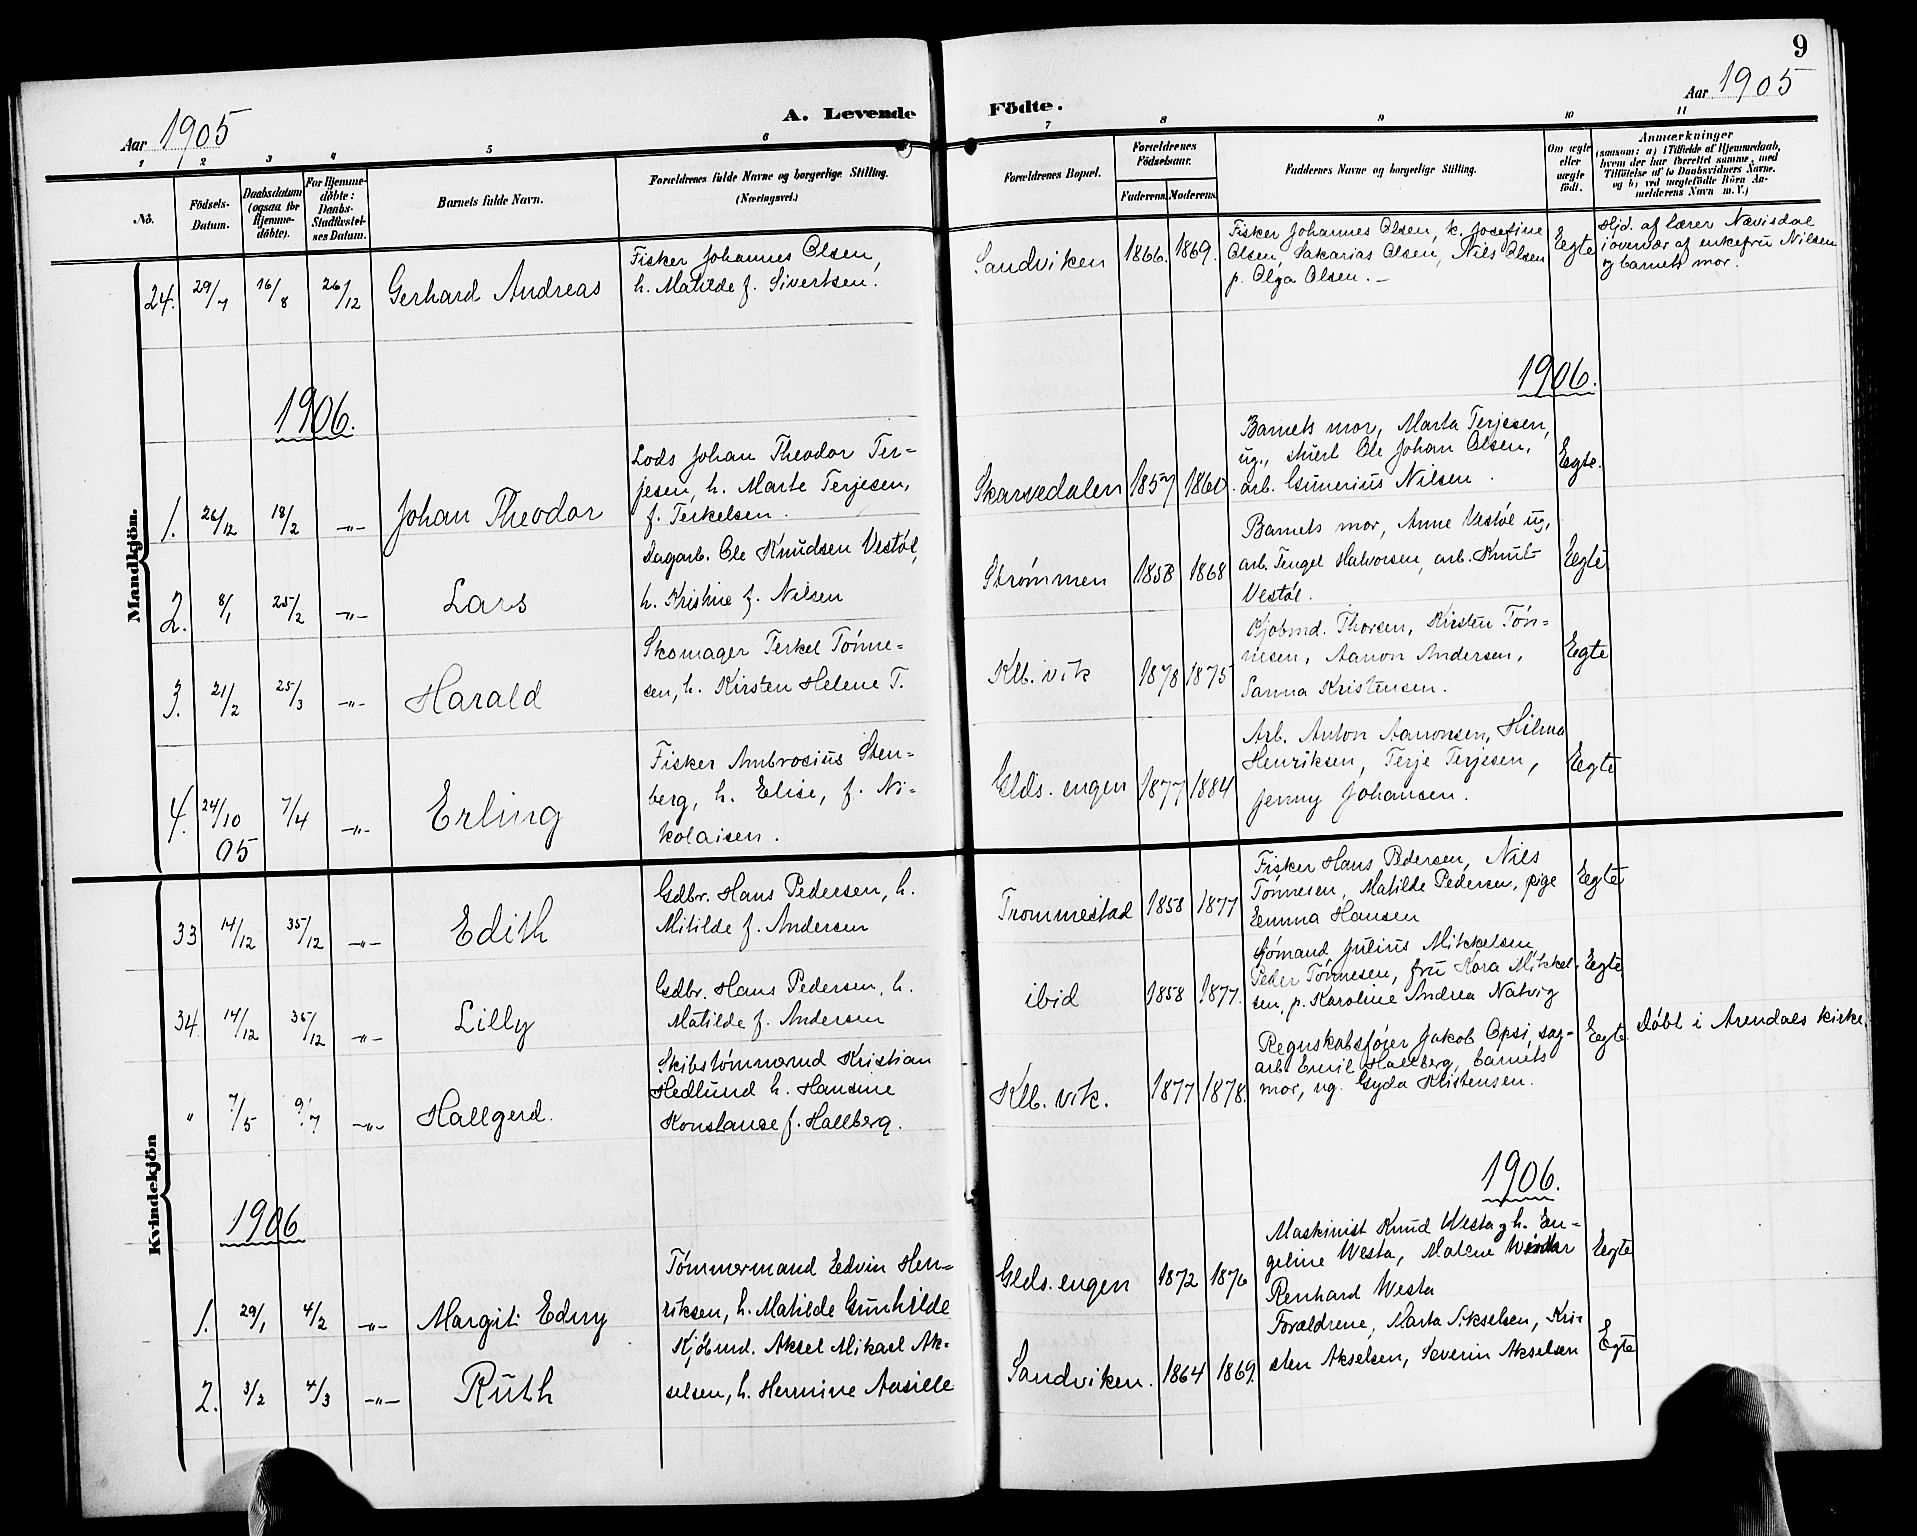 9
Aar 1905
A. Levende Födte.
Aar 1905
1 2 3 4 5 6 7 8 9 10 11
No.
Födsels-Datum.
Daabsdatum (ogsaa for Hjemme-döbte).
For Hjemme-döbte: Daabs-Stadfæstel-ses Datum.
Barnets fulde Navn.
Forældrenes fulde Navne og borgerlige Stilling.
(Næringsvei.)
Forældrenes Bopæl.
Forældrenes Födselsaar.
Faderens. Moderens.
Faddernes Navne og borgerlige Stilling.
Om ægte eller uægte födt.
Anmærkninger
(saasom: a) i Tilfælde af Hjemmedaab,
hvem der har forrettet samme, med
Tilföielse af to Daabsvidners Navne,
og b) ved uægtefödte Börn An-
melderens Navn m. V.)
Mandkjön.
24. 29/7 16/8 26/12 Gerhard Andreas
Fisker Johannes Olsen,
h. Matilde f. Sivertsen.
Sandviken 1866. 1869.
Fisker Johannes Olsen, k. Josefine
Olsen, Sakarias Olsen, Nils Olsen
p. Olga Olsen. –
Egte
Hjd. af lærer Nævisdal
i overvær af enkefru Nilsen
og barnets mor.
1906.
1906.
1. 26/12 18/2 -"- Johan Theodor
Lods Johan Theodor Ter-
jesen, h. Marte Terjesen,
f. Terkelsen.
Skarvedalen 1857 1860
Barnets mor, Marta Terjesen,
ug., stuert Ole Johan Olsen,
arb. Gunerius Nilsen.
Egte.
2. 8/1 25/2 -"- Lars
Dagarb. Ole Knudsen Vestøl,
h. Kristine f. Nilsen
Strømmen 1858 1868
Barnets mor, Anne Vestøl ug,
arb. Tengel Halvorsen, arb. Knut
Vestøl.
Egte
3. 21/2 25/3 -"- Harald
Skomager Terkel Tønne-
sen, h. Kirsten Helene T.
Klb. vik 1878 1875
Kjøbmd. Thorsen, Kirsten Tøn-
nesen, Aanon Andersen,
Sanna Kristensen.
Egte
4. 24/10 05 7/4 -"- Erling
Fisker Ambrosius Sten-
berg, h. Elise, f. Ni-
kolaisen.
Glds. engen 1877 1884
Arb. Anton Aanonsen, Hilma
Henriksen, Terje Terjesen,
Jenny Johansen.
Egte
Kvindekjön
33 14/12 35/12 -"- Edith
Gdbr. Hans Pedersen, h.
Mitilde f. Andersen
Trommestad 1858 1877
Fisker Hans Pedersen, Nils
Tønnesen, Matilde Pedersen, pige
Emma Hansen
Egte
34. 14/12 35/12 -"- Lilly
Gdbr. Hans Pedersen, h.
Matilde f. Andersen
ibid 1858 1877.
Sjømand Julius Mikkelsen,
Peder Tønnesen, fru Kora Mikkel-
sen, p. Karoline Andrea Natvig
Egte
" 7/5 9/7 -"- Hallgerd.
Skibstømmermd Kristian
Hedlund h. Hansine
Konstanse f. Hallberg.
Klb. vik. 1877 1878.
Regnskabsfører Jakob Opsi, sag-
arb. Emil Hallberg, barnets
mor, ug. Gyda Kristensen.
Egte.
Døbt i Arendals kirke.
1906
1906.
1. 29/1 4/2 -"- Margit Edny
Tømmermand Edvin Hen-
riksen, h. Matilde Gunhilde
Glds. engen 1872 1876
Maskinist Knud Westa og h. En-
geline Westa, Malene
Renhard Westa
Egte
2. 3/2 4/3 -"- Ruth
Kjøbmd. Aksel Mikael Ak-
selsen, h. Hermine Aasille
Sandviken. 1864 1869.
Forældrene, Marta Akselsen, Kri-
sten Akselsen, Severin Akselsen
Egte